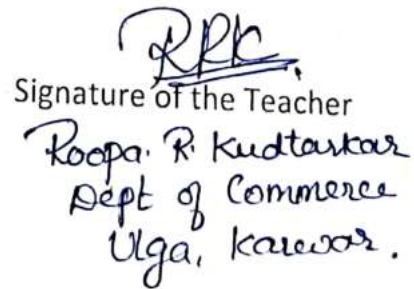 RRK
Signature of the Teacher
Roopa. R. Kudtarkar
Dept of Commerce
Ulga, Karwar.